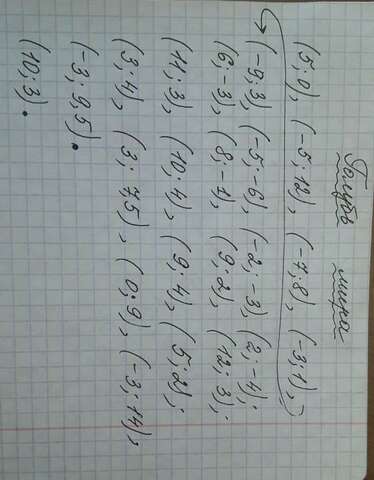 Голубь мира
(5; 0), (-5; 12), (-7; 8), (-3; 1),
(-9; 3), (-5; -6), (-2; -3), (2; -4);
(6; -3), (8; -1), (9; 2), (12; 3);
(11; 3), (10; 4), (9; 4), (5; 2);
(3; 4), (3; 7,5), (0; 9), (-3; 14),
(-3; 9,5).
(10; 3).